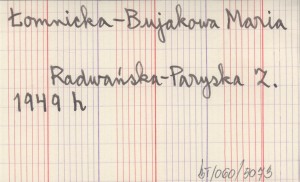 Łomnicka-Bujakowa Maria
Radwańska-Paryska Z.
1949 h